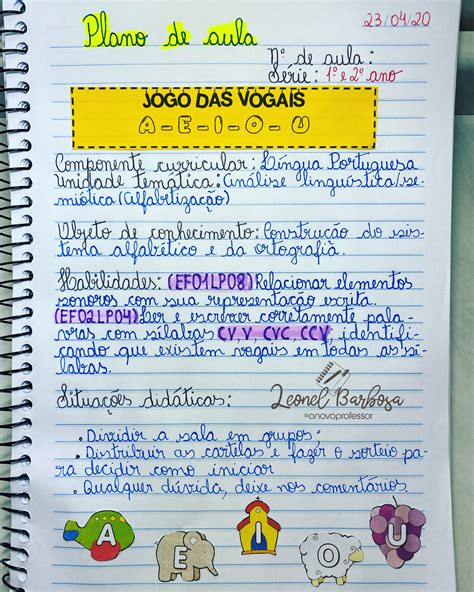 23/04/20
Plano de aula
Nº de aula:
Série: 1º e 2º ano
JOGO DAS VOGAIS
A-E-I-O-U
Componente curricular: Língua Portuguesa
Unidade temática: Análise linguística/se-
miótica (Alfabetização)
Objeto de conhecimento: Construção do sis-
tema alfabético e da ortografia.
Habilidades: (EF01LP08) Relacionar elementos
sonoros com sua representação escrita.
(EF02LP04) Ler e escrever corretamente pala-
vras com sílabas CV, V, CVC, CCV, identifi-
cando que existem vogais em todas as sí-
labas.
Situações didáticas:
Leonel Barbosa
@onovoprofessor
• Dividir a sala em grupos;
• Distribuir as cartelas e fazer o sorteio pa-
ra decidir como iniciar
• Qualquer dúvida, deixe nos comentários.
A E I O U